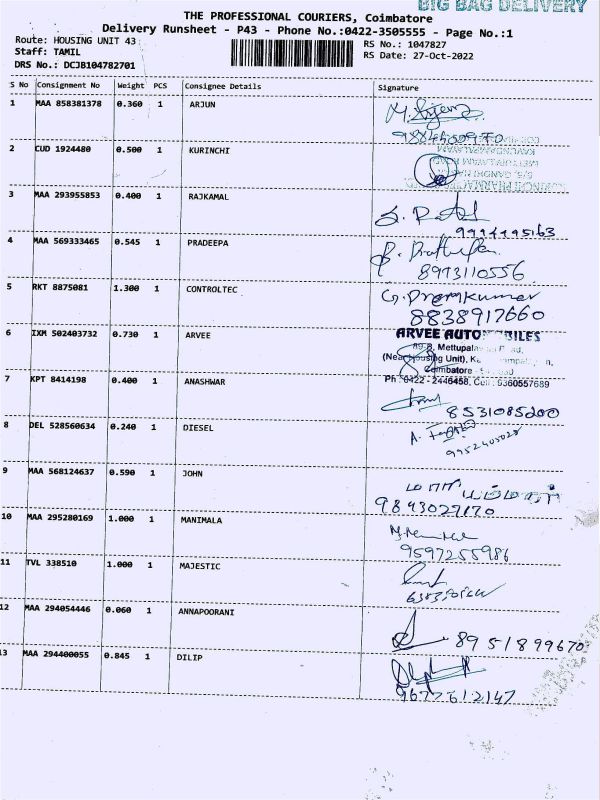 BIG BAG DELIVERY
THE PROFESSIONAL COURIERS, Coimbatore
Delivery Runsheet - P43 - Phone No.:0422-3505555 - Page No.:1
Route: HOUSING UNIT 43
Staff: TAMIL
DRS No.: DCJB104782701
RS No.: 1047827
RS Date: 27-Oct-2022
S No Consignment No Weight PCS Consignee Details Signature
1 MAA 858381378 0.360 1 ARJUN
2 CUD 1924480 0.500 1 KURINCHI
3 MAA 293955853 0.400 1 RAJKAMAL
9994495163
4 MAA 569333465 0.545 1 PRADEEPA
8973110556
5 RKT 8875081 1.300 1 CONTROLTEC G. Premkumar
8838917660
6 IXM 502403732 0.730 1 ARVEE ARVEE AUTOMOBILES
89-B, Mettupalayam Road,
(Near Housing Unit),
Coimbatore
Ph: 0422 - 2446458, Cell: 9360557689
7 KPT 8414198 0.400 1 ANASHWAR
8531085200
8 DEL 528560634 0.240 1 DIESEL
9952405028
9 MAA 568124637 0.590 1 JOHN
9843027170
10 MAA 295280169 1.000 1 MANIMALA
9597255986
11 TVL 338510 1.000 1 MAJESTIC
12 MAA 294054446 0.060 1 ANNAPOORANI
8951899670
13 MAA 294400055 0.845 1 DILIP
9677612147